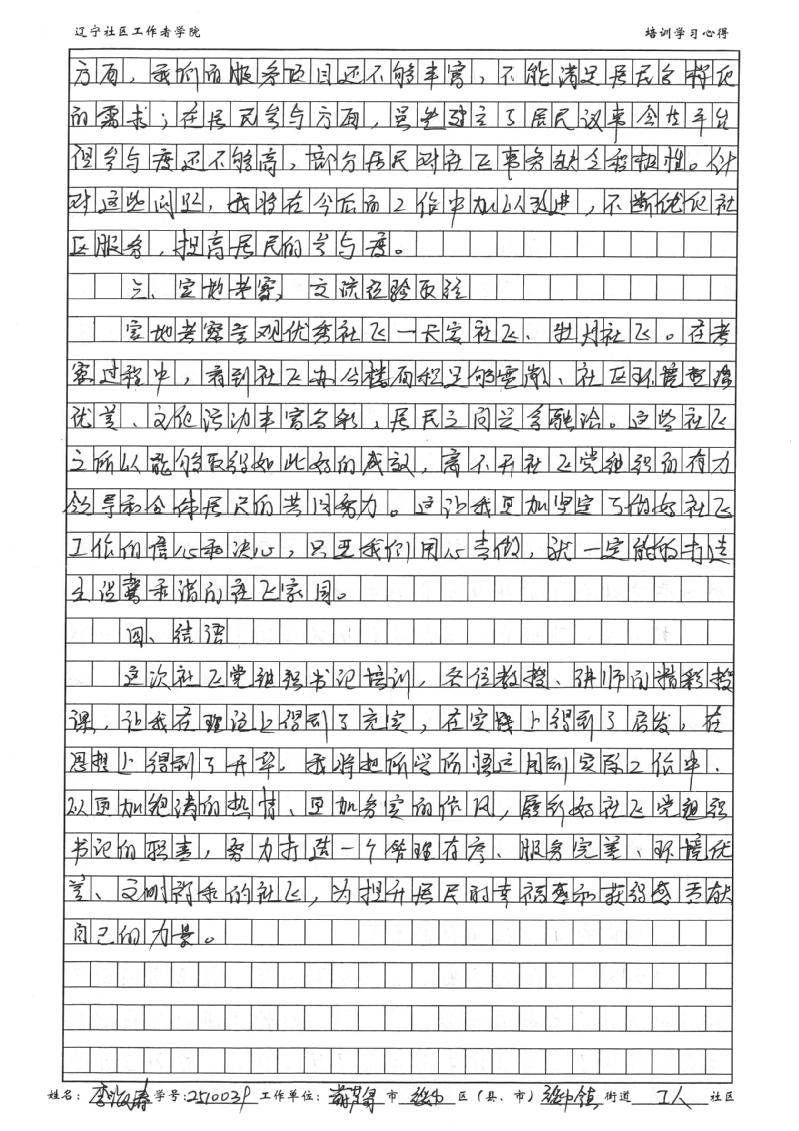 辽宁社区工作者学院 培训学习心得
方面，我们的服务项目还不够丰富，不能满足居民多样化
的需求；在居民参与方面，虽然建立了居民议事会等平台
但参与度还不够高，部分居民对社区事务缺乏积极性。针
对这些问题，我将在今后的工作中加以改进，不断优化社
区服务，提高居民的参与度。
三、实地考察，交流经验取经
实地考察参观优秀社区一长安社区、牡丹社区。在考
察过程中，看到社区办公楼面积足够宽敞、社区环境整洁
优美、文化活动丰富多彩，居民之间关系融洽。这些社区
之所以能够取得如此好的成效，离不开社区党组织的有力
领导和全体居民的共同努力。这让我更加坚定了做好社区
工作的信心和决心，只要我们用心去做，就一定能够打造
出温馨和谐的社区家园。
四、结语
这次社区党组织书记培训，各位教授、讲师的精彩授
课，让我在理论上得到了充实，在实践上得到了启发，在
思想上得到了升华。我将把所学所悟运用到实际工作中，
以更加饱满的热情、更加务实的作风，履行好社区党组织
书记的职责，努力打造一个管理有序、服务完善、环境优
美、文明祥和的社区，为提升居民的幸福感和获得感贡献
自己的力量。
姓名： 学号：2510039 工作单位： 市 区（县、市） 镇 街道 工人 社区